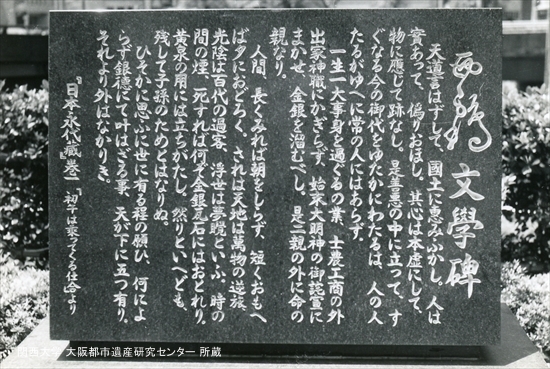 西鶴 文學碑
天道言はずして、國土に恵みふかし。人は
實あつて、偽りおほし。其心は本虚にして、
物に應じて跡なし。是善悪の中に立つて、す
ぐなる今の御代をゆたかにわたるは、人の人
たるがゆへに常の人にはあらず。
一生一大事身を過ぐるの業、士農工商の外
出家神職にかぎらず、始末大明神の御詫宣に
まかせ、金銀を溜むべし。是二親の外に命の
親なり。
人間、長くみれば朝をしらず、短くおもへ
ば夕におどろく。されば天地は萬物の逆旅、
光陰は百代の過客、浮世は夢幻といふ。時の
間の煙、死すれば何ぞ金銀瓦石にはおとれり。
黄泉の用には立ちがたし。然りといへども、
残して子孫のためとはなりぬ。
ひそかに思ふに世に有る程の願ひ、何によ
らず銀徳にて叶はざる事、天が下に五つ有り。
それより外はなかりき。
『日本永代蔵』巻一「初午は乗つてくる仕合」より
大阪都市遺産研究センター 所蔵